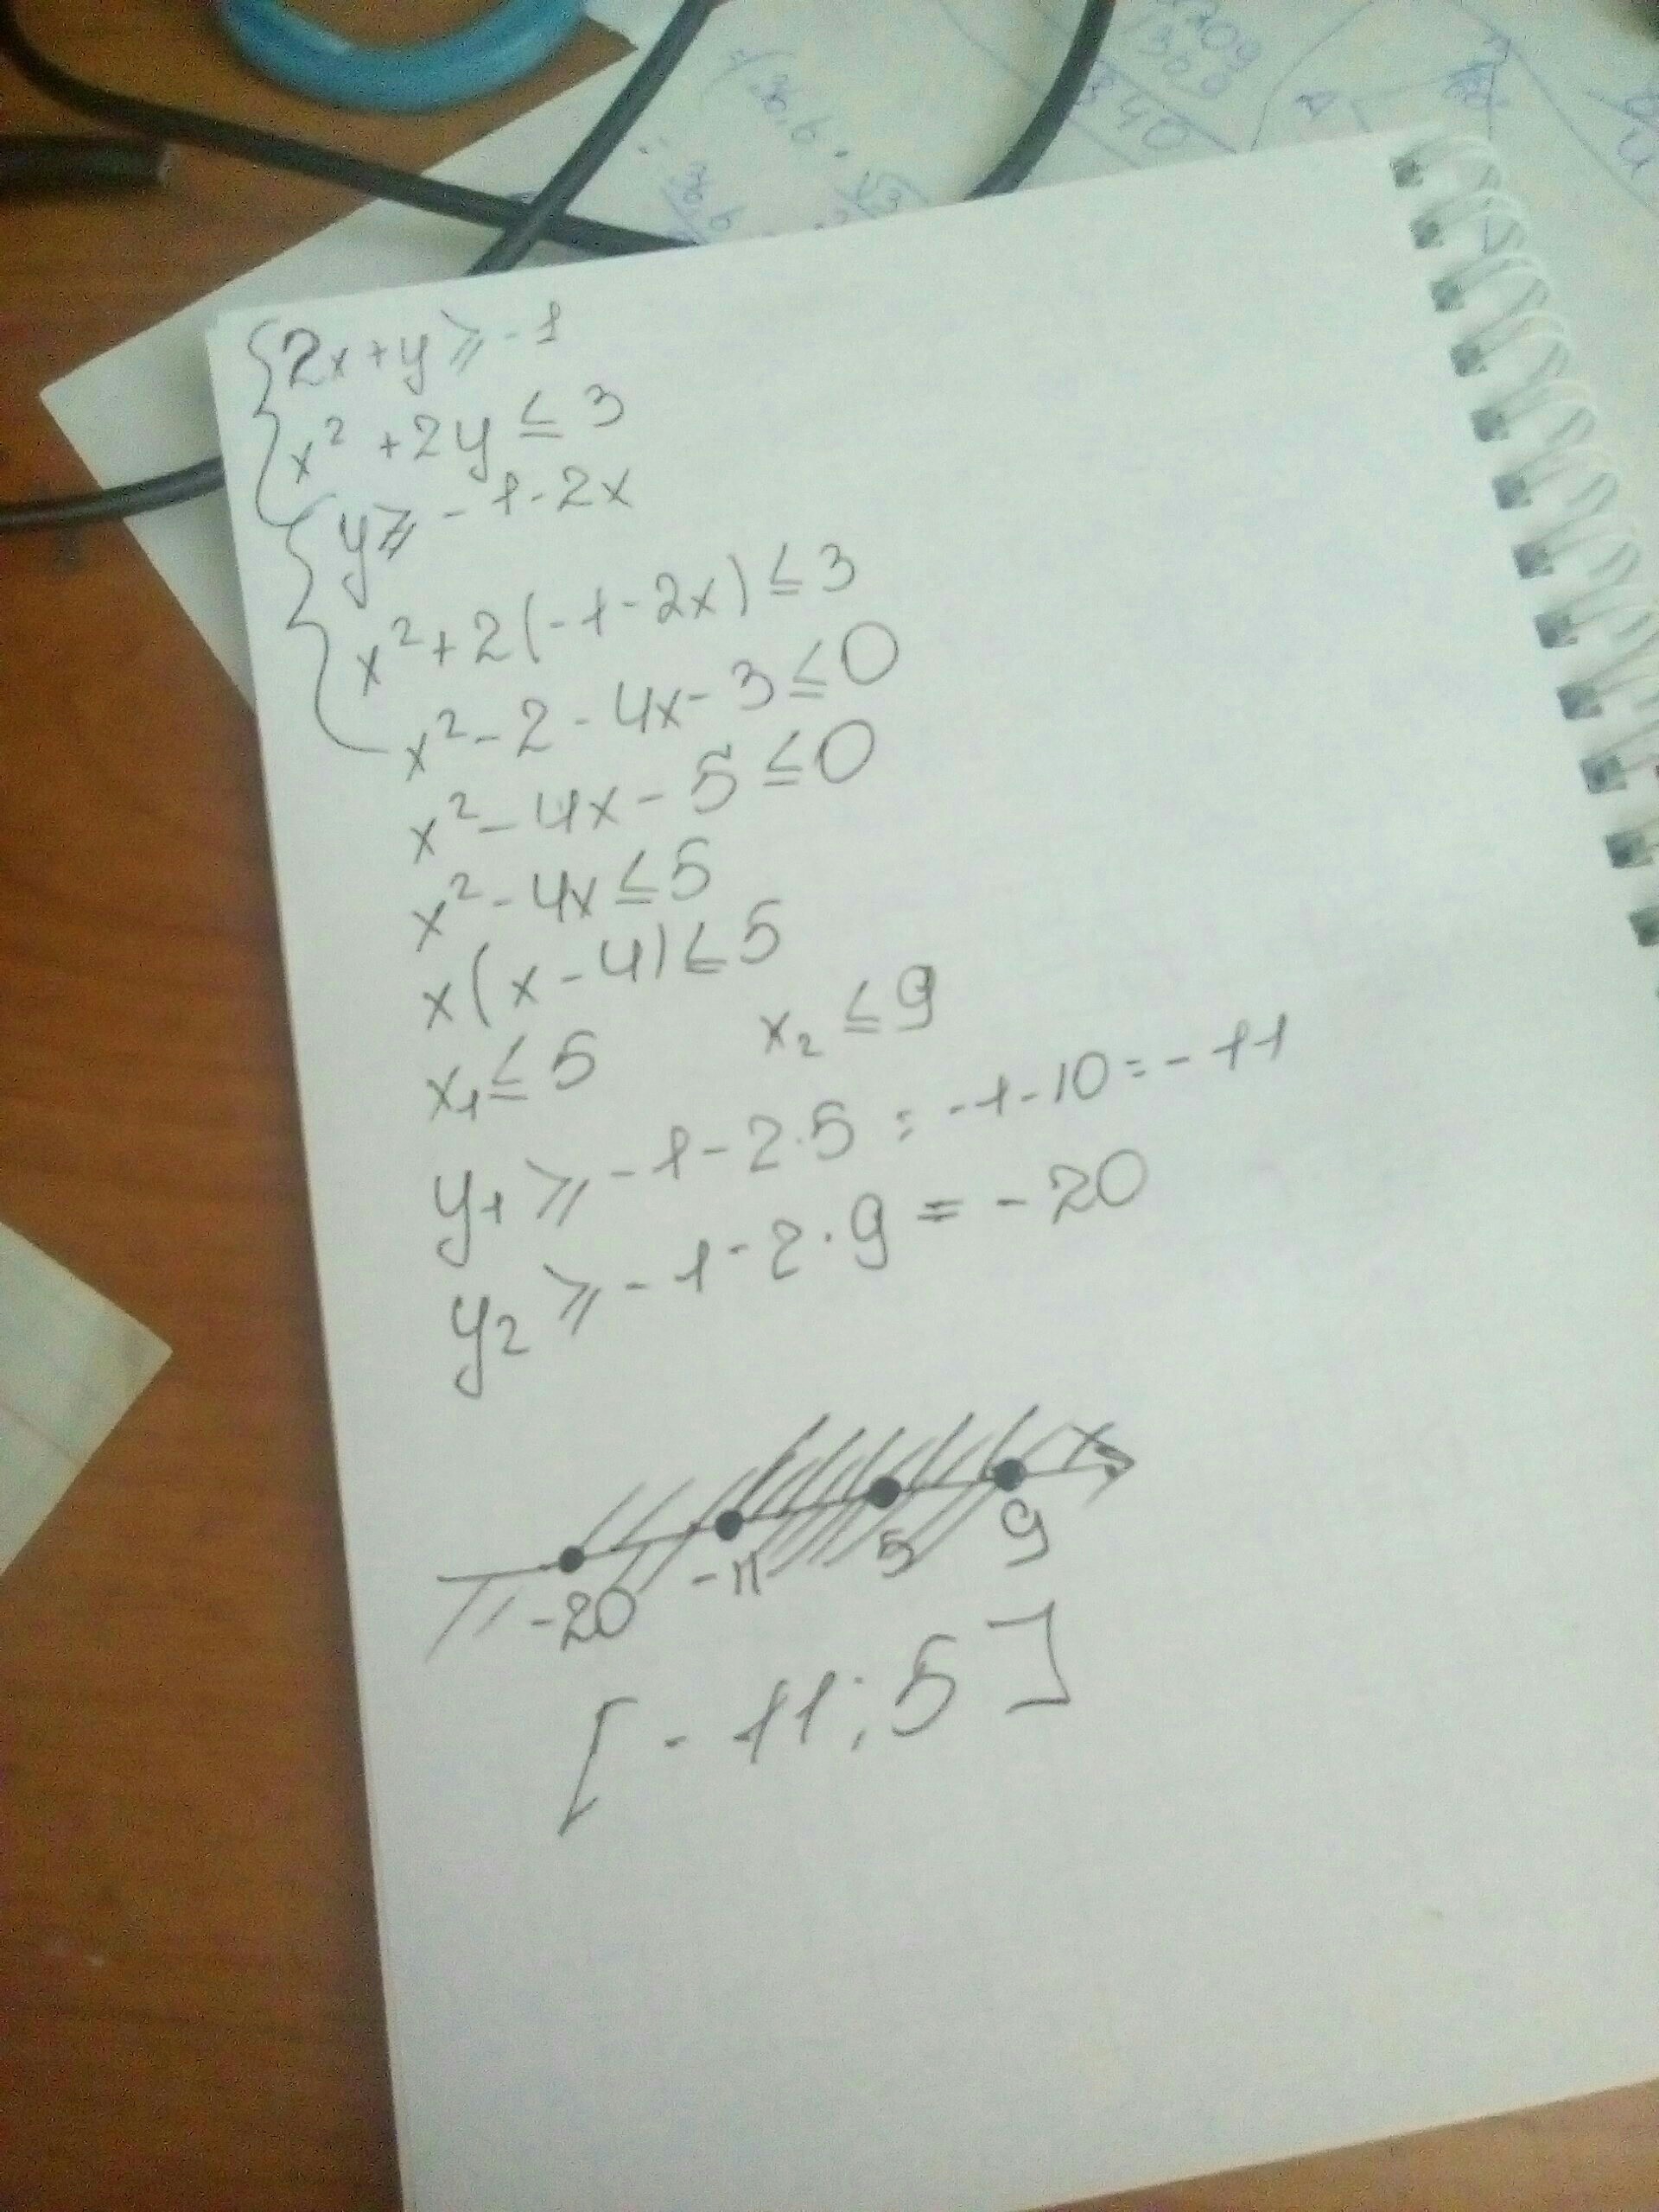 2x+y⩾-1
x²+2y≤3
y⩾-1-2x
x²+2(-1-2x)≤3
x²-2-4x-3≤0
x²-4x-5≤0
x²-4x≤5
x(x-4)≤5
x₁≤5 x₂≤9
y₁⩾-1-2·5=-1-10=-11
y₂⩾-1-2·9=-20
x
-20 -11 5 9
[-11;5]